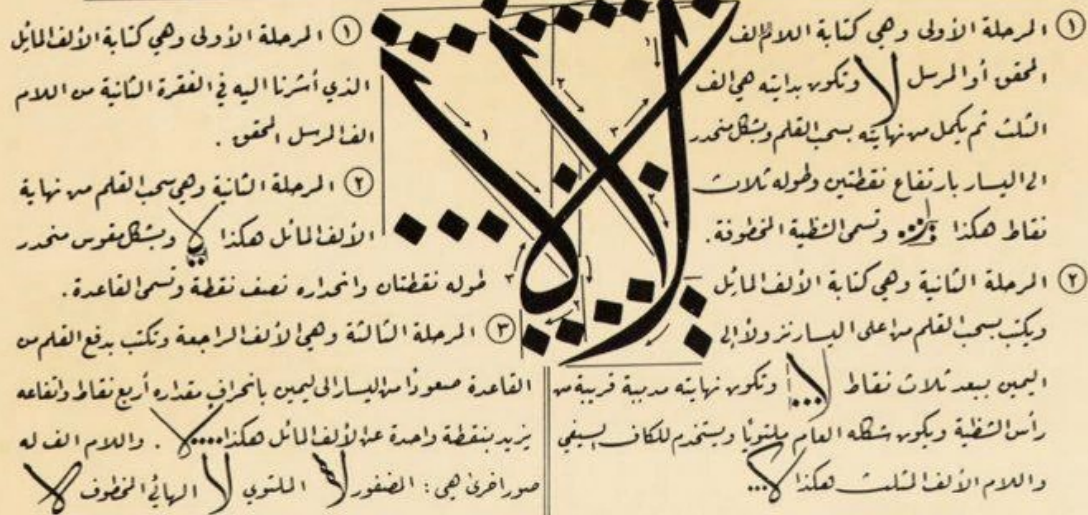 ① المرحلة الأولى وهي كتابة اللام الف
المحقق أو المرسل لا وتكون بدايته هي الف
الثلث ثم يكمل من نهايته بسحب القلم وبشكل منحدر
الى اليسار بارتفاع نقطتين وطوله ثلاث
نقاط هكذا وتسمى الشظية المخطوفة.
② المرحلة الثانية وهي كتابة الألف المائل
ويكتب بسحب القلم من اعلى اليسار نزولاً إلى
اليمين ببعد ثلاث نقاط وتكون نهايته مدببة قريبة من
رأس الشظية ويكون شكله العام ملتويًا ويستخدم للكاف السيفي
واللام الألف المثلث هكذا
لالا
① المرحلة الأولى وهي كتابة الألف المائل
الذي أشرنا اليه في الفقرة الثانية من اللام
الف المرسل المحقق .
② المرحلة الثانية وهي سحب القلم من نهاية
الألف المائل هكذا وبشكل مقوس منحدر
طوله نقطتان وانحداره نصف نقطة وتسمى القاعدة.
③ المرحلة الثالثة وهي الألف الراجعة وتكتب بدفع القلم من
القاعدة صعودًا من اليسار الى اليمين بانحراف مقداره أربع نقاط وارتفاعه
يزيد بنقطة واحدة عن الألف المائل هكذا . واللام الف له
صور اخرى هي : المضفور لا الملتوي لا الهائي المخطوف لا